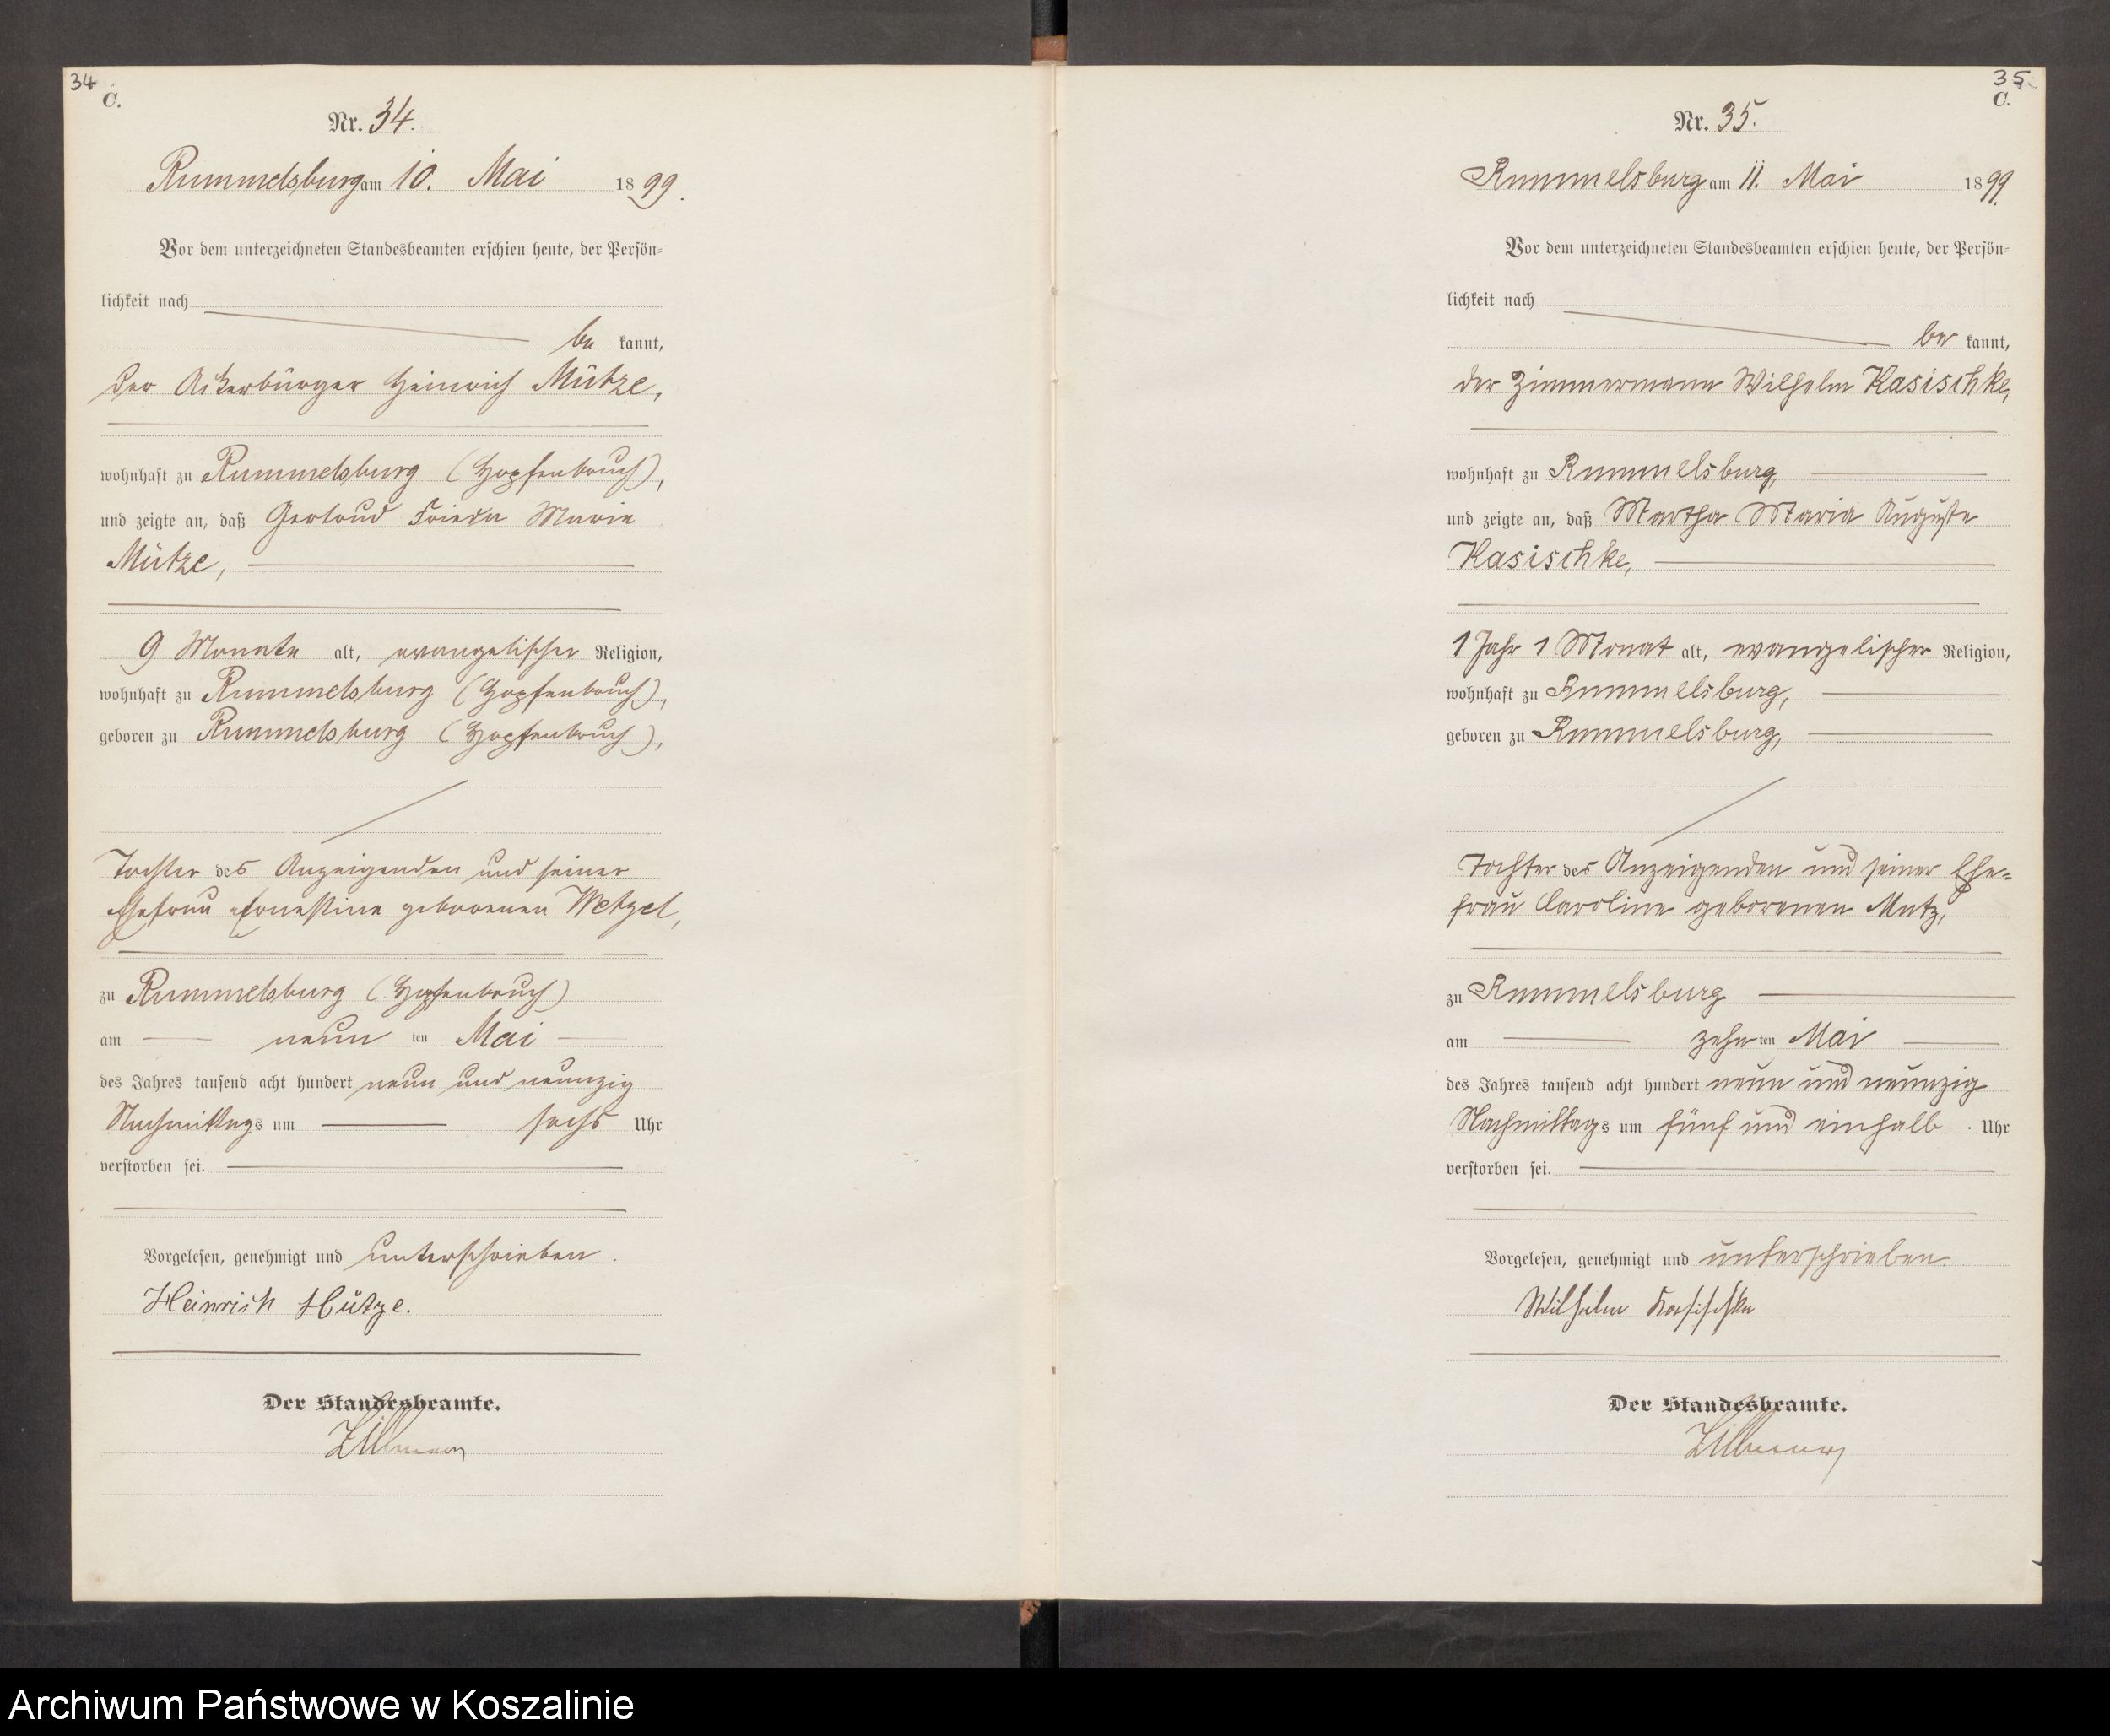 34
C.
Nr. 34.
Rummelsburg am 10. Mai 1899.
Vor dem unterzeichneten Standesbeamten erschien heute, der Persön-
lichkeit nach
be kannt,
der Ackerbürger Heinrich Mütze,
wohnhaft zu Rummelsburg (Hopfenbruch),
und zeigte an, daß Gertrud Frieda Marie
Mütze,
9 Monate alt, evangelischer Religion,
wohnhaft zu Rummelsburg (Hopfenbruch),
geboren zu Rummelsburg (Hopfenbruch),
Tochter des Anzeigenden und seiner
Ehefrau Ernestine geborenen Wetzel,
zu Rummelsburg (Hopfenbruch)
am neun ten Mai
des Jahres tausend acht hundert neun und neunzig
Nachmittags um sechs Uhr
verstorben sei.
Vorgelesen, genehmigt und unterschrieben.
Heinrich Mütze.
Der Standesbeamte.
35
C.
Nr. 35.
Rummelsburg am 11. Mai 1899.
Vor dem unterzeichneten Standesbeamten erschien heute, der Persön-
lichkeit nach
be kannt,
der Zimmermann Wilhelm Kasischke,
wohnhaft zu Rummelsburg,
und zeigte an, daß Martha Maria Auguste
Kasischke,
1 Jahr 1 Monat alt, evangelischer Religion,
wohnhaft zu Rummelsburg,
geboren zu Rummelsburg,
Tochter des Anzeigenden und seiner Ehe-
frau Caroline geborenen Mutz,
zu Rummelsburg
am zehn ten Mai
des Jahres tausend acht hundert neun und neunzig
Nachmittags um fünf und einhalb Uhr
verstorben sei.
Vorgelesen, genehmigt und unterschrieben.
Wilhelm Kasischke
Der Standesbeamte.
Archiwum Państwowe w Koszalinie